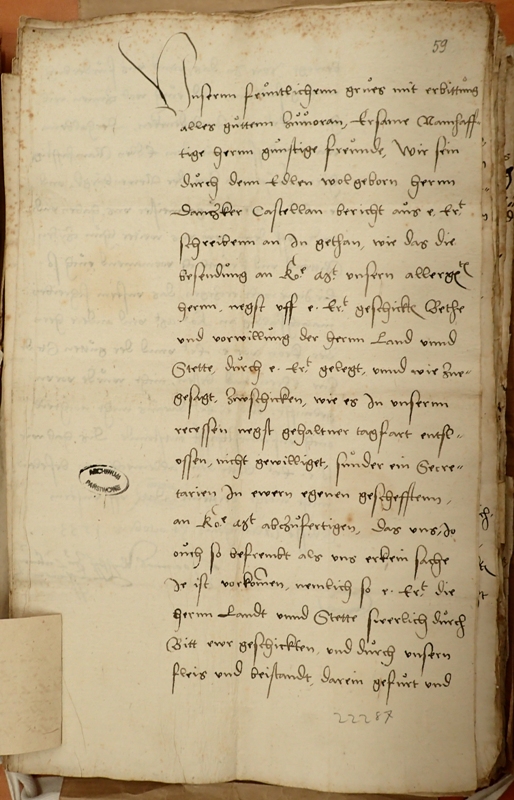 59
Vnsernn freuntlichenn grues mit erbittung
alles guttenn zuuoran, Ersame Namhaff-
tige hernn gunstige freunde, Wir sein
durch denn Edlen wolgeborn hernn
Dantzker Castellan bericht aus e. Er:t
schreibenn an In gethan, wie das die
besendung an Ko:e Mat unsern allergn
hernn, negst vff e. Er:t geschickt Bethe
vnd vorwillung der hernn Land vnnd
Stette, durch e. Er:t gelegt, vnnd wie zue-
gesagt, zwschicken, wie es In vnsernn
recessen negst gehaltner tagfart entsl-
ossen, nicht gewilliget, sunder ein Secre-
tarien In ewern egenen geschefftenn,
an Ko:e Mat abzufertigen, Das vns, Jo
ouch so befrembt als vns erkein sache
Je ist vorkomen, nemlich so e. Er:t die
hernn Landt vnnd Stette sweerlich durch
Bitt ewr geschickten, vnd durch vnsern
fleis vnd beistandt, darein gefurt vnd
ARCHIWUM
22287